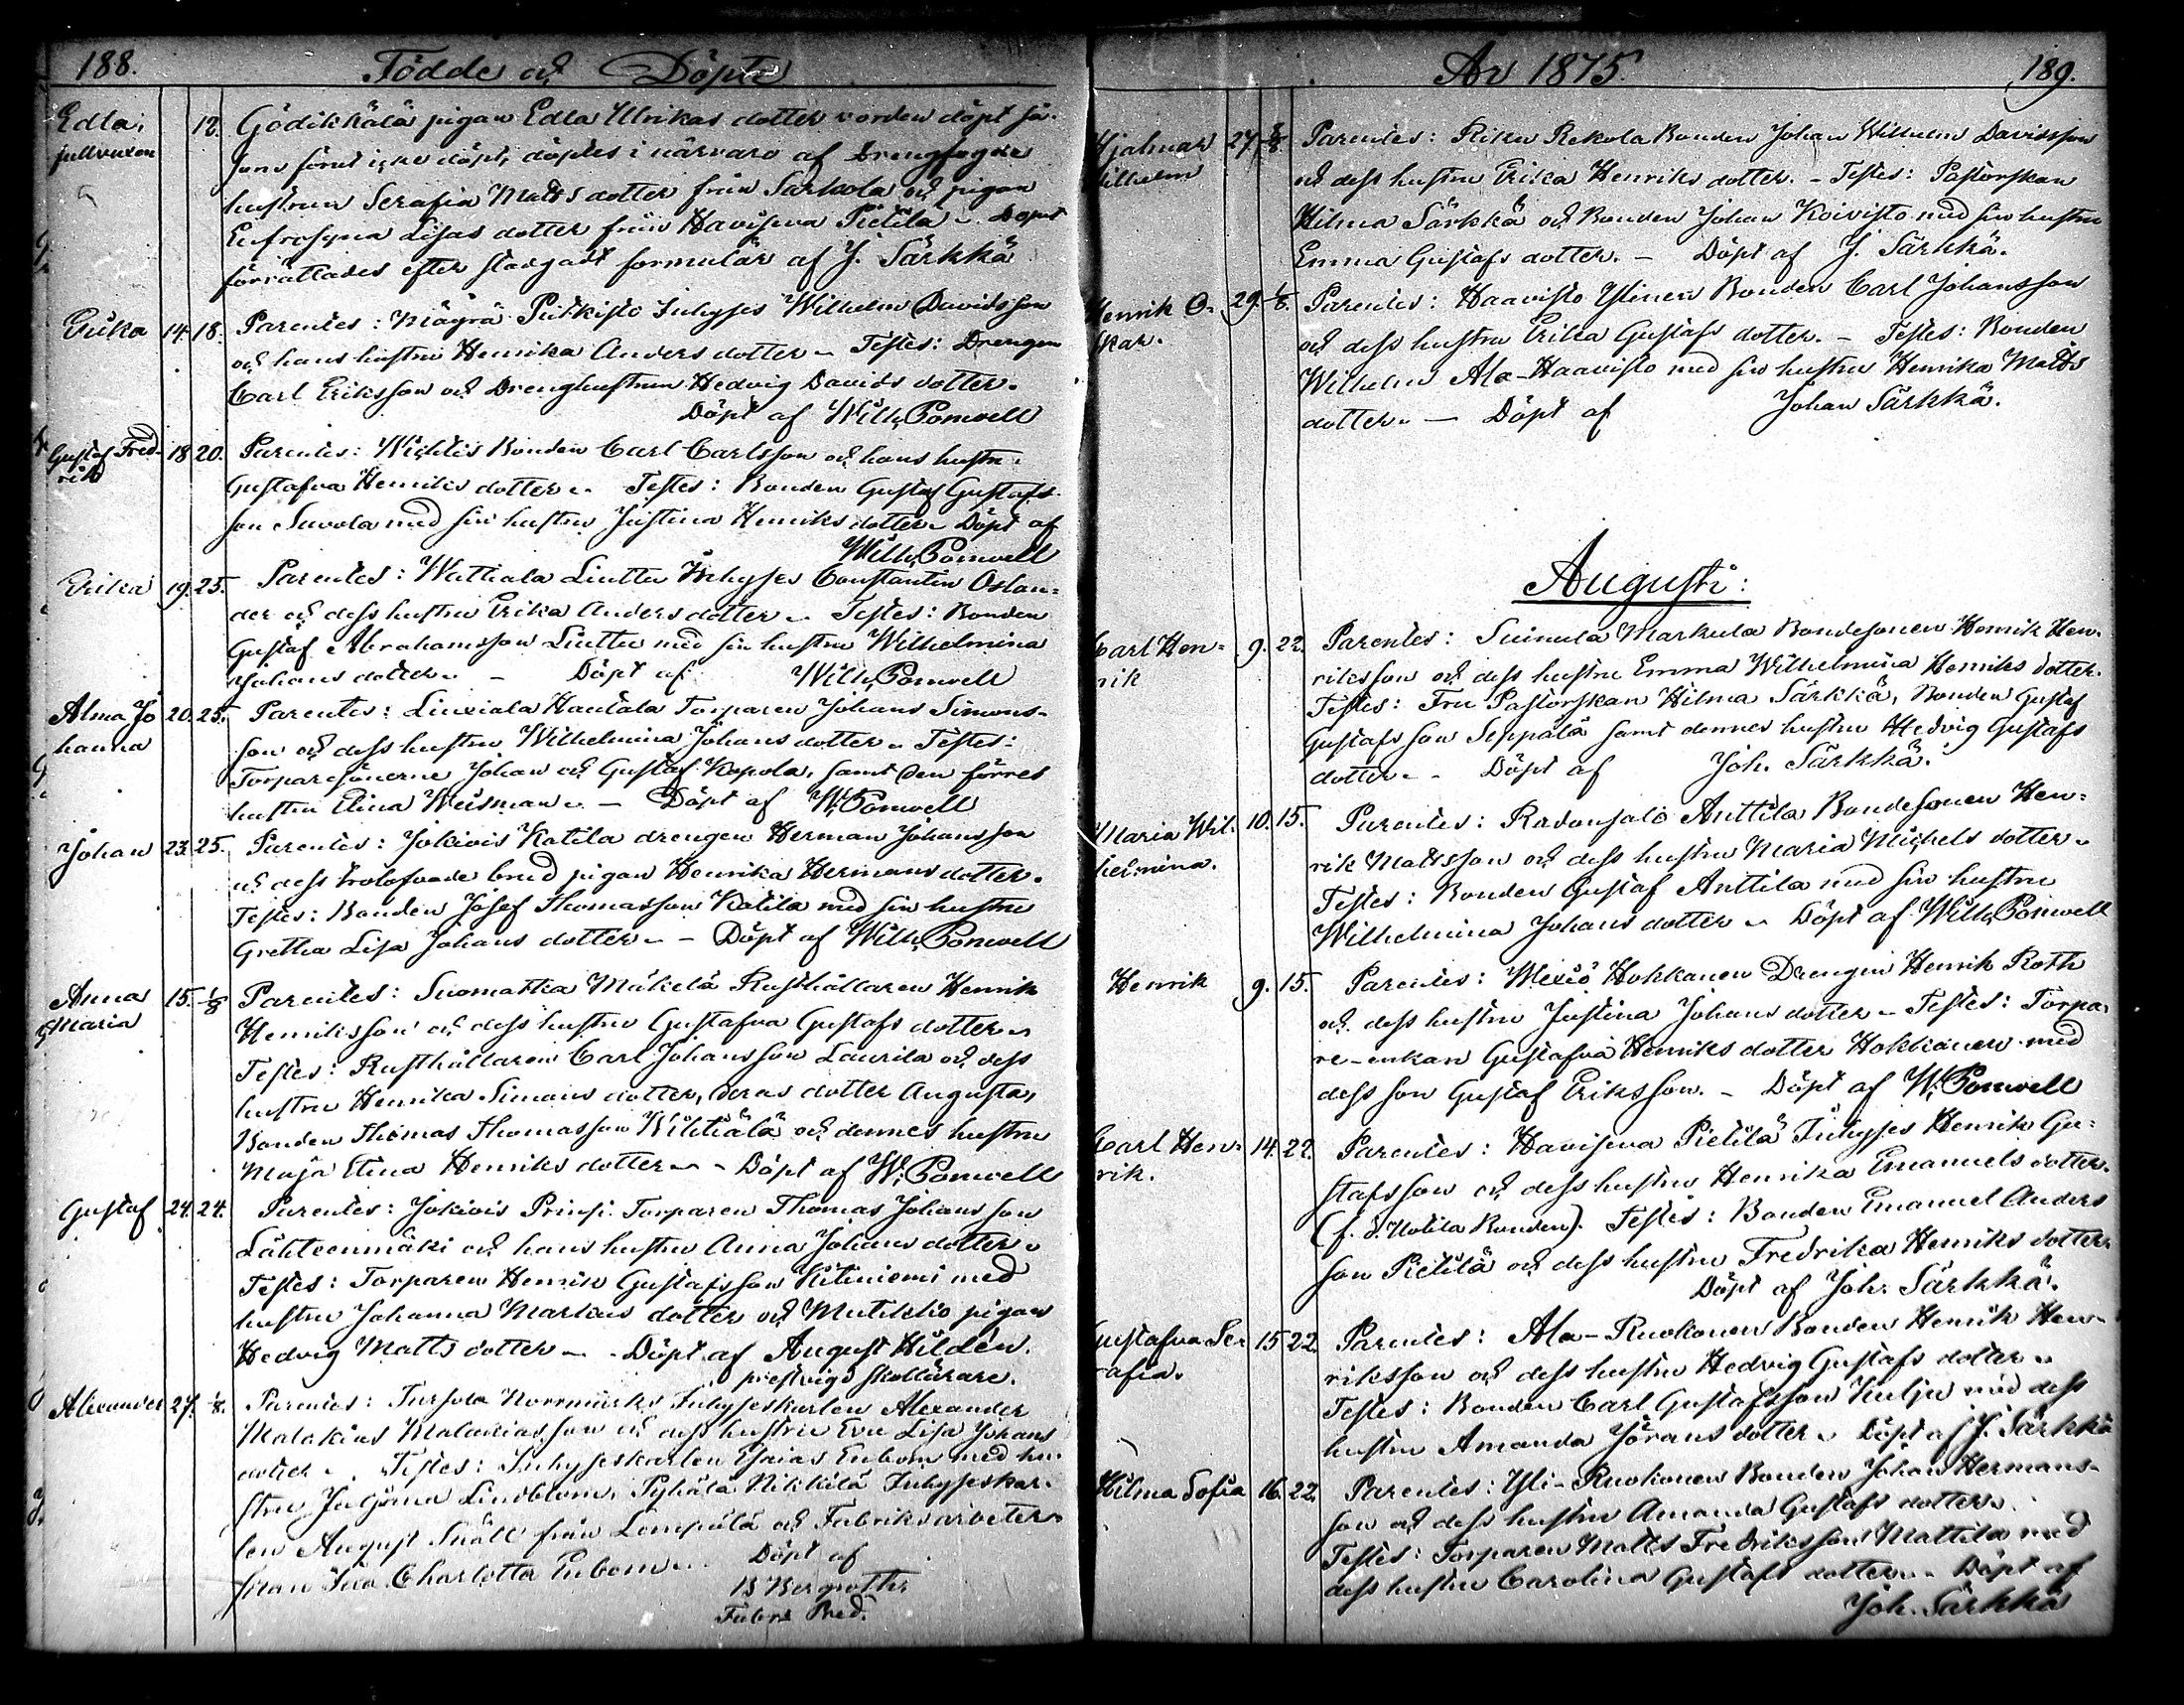 188. Födde och Döpte
Edla, fullvuxen 12. Gödikkälä pigan Edla Ulrikas dotter vorden döpt så-
som förut icke döpt, döptes i närvaro af Drengfogde
hustrun Serafia Matts dotter från Sarkola och pigan
Eufrosyna Lisas dotter från Haviseva Pietilä. Dopet
förrättades efter stadgadt formulär af J. Särkkä
Erika 14. 18. Parentes: Inhyses Wilhelm Davidsson
och hans hustru Henrika Anders dotter. Testes: Drengen
Carl Eriksson och Drenghustrun Hedvig Davids dotter.
Döpt af Wilh. Pomoell
Gustaf Fred-
rik 18 20. Parentes: Bonden Carl Carlsson och hans hustru
Gustafva Henriks dotter. Testes: Bonden Gustaf Gustafs-
son Suvola med sin hustru Justina Henriks dotter. Döpt af
Wilh. Pomoell
Erika 19. 25. Parentes: Wattiala Liuttu Inhyses Constantin Oslan-
der och dess hustru Erika Anders dotter. Testes: Bonden
Gustaf Abrahamsson Liuttu med sin hustru Wilhelmina
Johans dotter. - Döpt af Wilh. Pomoell
Alma Jo
hanna 20. 25. Parentes: Linxiala Hautala Torparen Johans Simons-
son och dess hustru Wilhelmina Johans dotter. Testes:
Torparesönerne Johan och Gustaf Kopola, samt den förres
hustru Elina Weisman. - Döpt af W. Pomoell
Johan 23. 25. Parentes: Jokiois Katila drengen Herman Johansson
och dess trolofvade brud pigan Henrika Hermans dotter.
Testes: Bonden Josef Thomasson Katila med sin hustru
Gretha Lisa Johans dotter. - Döpt af Wilh. Pomoell
Anna
Maria 15. 1/8 Parentes: Suomattka Mäkelä Rusthållaren Henrik
Henriksson och dess hustru Gustafva Gustafs dotter.
Testes: Rusthållaren Carl Johansson Laurila och dess
hustru Henrika Simons dotter, deras dotter Augusta,
Bonden Thomas Thomasson Wihtiälä och dennes hustru
Maja Stina Henriks dotter. - Döpt af W. Pomoell
Gustaf 24. 24. Parentes: Jokiois Prinsi Torparen Thomas Johansson
Lähteenmäki och hans hustru Anna Johans dotter.
Testes: Torparen Henrik Gustafsson Kitiniemi med
hustru Johanna Markus dotter och Mutikkio pigan
Hedvig Matts dotter. - Döpt af August Hildén.
prestvigd skollärare.
Alexander 27. 1/8. Parentes: Tursola Norrmarks Inhyseskarlen Alexander
Malakias Malakiasson och dess hustru Eva Lisa Johans
dotter. Testes: Inhyseskarlen Esaias Enbom med hu-
stru Juljana Lindblom, Pyhälä Nikkilä Inhyseskar-
len August Snäll från Lempälä och Fabriksarbeter-
skan Eva Charlotta Enbom. Döpt af
B Bergroth
Fabrs Pred.
År 1875 189.
Hjalmar
Wilhelm 27. 8/8 Parentes: Riku Rekola Bonden Johan Wilhelm Davidsson
och dess hustru Erika Henriks dotter. - Testes: Pastorskan
Hilma Särkkä och Bonden Johan Koivisto med sin hustru
Emma Gustafs dotter. - Döpt af J. Särkkä.
Henrik O-
skar. 29. 1/8. Parentes: Haavisto Ylinen Bonden Carl Johansson
och dess hustru Erika Gustafs dotter. - Testes: Bonden
Wilhelm Ala-Haavisto med sin hustru Henrika Matts
dotter. - Döpt af Johan Särkkä.
Augusti:
Carl Hen-
rik 9. 22. Parentes: Suinula Markula Bondesonen Henrik Hen-
riksson och dess hustru Emma Wilhelmina Henriks dotter.
Testes: Fru Pastorskan Hilma Särkkä, Bonden Gustaf
Gustafsson Seppälä samt dennes hustru Hedvig Gustafs
dotter. - Döpt af Joh. Särkkä.
Maria Wil-
helmina. 10. 15. Parentes: Radansalo Anttila Bondesonen Hen-
rik Mattsson och dess hustru Maria Michels dotter.
Testes: Bonden Gustaf Anttila med sin hustru
Wilhelmina Johans dotter. Döpt af Wilh. Pomoell
Henrik 9. 15. Parentes: Wexiö Hokkanen Drengen Henrik Roth
och dess hustru Justina Johans dotter. Testes: Torpa-
re-enkan Gustafva Henriks dotter Hokkanen med
dess son Gustaf Eriksson. - Döpt af W. Pomoell
Carl Hen-
rik. 14. 22. Parentes: Havisewa Pietilä Inhyses Henrik Gu-
stafsson och dess hustru Henrika Emanuels dotter.
(f. d. Kotila Bonden). Testes: Bonden Emanuel Anders
son Pietilä och dess hustru Fredrika Henriks dotter.
Döpt af Joh. Särkkä.
Gustafva Se-
rafia. 15 22. Parentes: Ala-Ruokonen Bonden Henrik Hen-
riksson och dess hustru Hedvig Gustafs dotter.
Testes: Bonden Carl Gustafsson Kulju med dess
hustru Amanda Jörans dotter. Döpt af J. Särkkä
Hilma Sofia 16. 22. Parentes: Yli-Ruokonen Bonden Johan Hermans-
son och dess hustru Amanda Gustafs dotter.
Testes: Torparen Matts Fredriksson Mattila med
dess hustru Carolina Gustafs dotter. - Döpt af
Joh. Särkkä